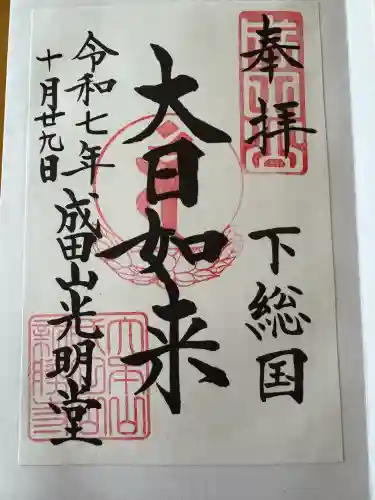 奉拝
下総国
大日如来
成田山光明堂
令和七年
十月廿九日